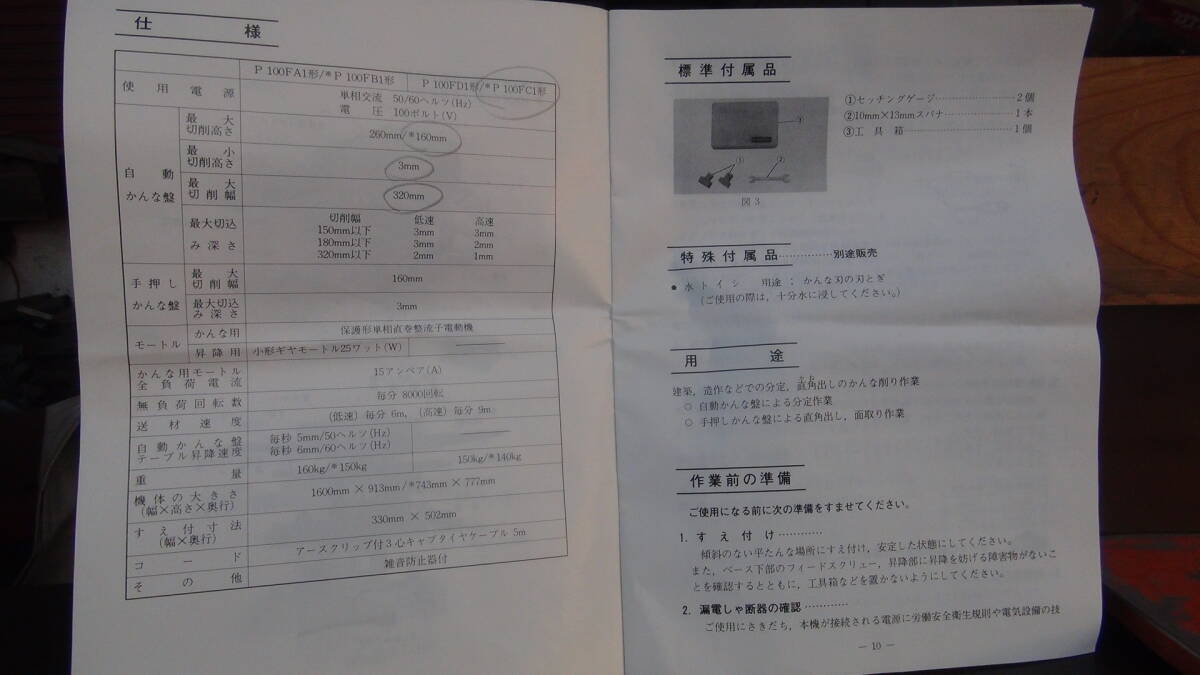 仕 様
P 100FA1形/*P 100FB1形 P 100FD1形/*P 100FC1形
使用電源 単相交流 50/60ヘルツ(Hz)
電 圧 100ボルト(V)
自 動 かんな盤
最 大 切削高さ 260mm/*160mm
最 小 切削高さ 3mm
最 大 切 削 幅 320mm
最大切込み深さ 切削幅 低速 高速
150mm以下 3mm 3mm
180mm以下 3mm 2mm
320mm以下 2mm 1mm
手 押 し かんな盤
最 大 切 削 幅 160mm
最大切込み深さ 3mm
モートル かんな用 保護形単相直巻整流子電動機
昇 降 用 小形ギヤモートル25ワット(W) ———
かんな用モートル 全 負 荷 電 流 15アンペア(A)
無負荷回転数 毎分 8000回転
送 材 速 度 (低速) 毎分 6m, (高速) 毎分 9m
自 動 か ん な 盤 テーブル昇降速度 毎秒 5mm/50ヘルツ(Hz) ———
毎秒 6mm/60ヘルツ(Hz)
重 量 160kg/*150kg 150kg/*140kg
機体の大きさ (幅×高さ×奥行) 1600mm × 913mm/*743mm × 777mm
すえ付寸法 (幅×奥行) 330mm × 502mm
コ ー ド アースクリップ付3心キャブタイヤケーブル 5m
そ の 他 雑音防止器付
標準付属品
①セッチングゲージ……………… 2個
②10mm×13mmスパナ……………… 1本
③工 具 箱……………… 1個
③
① ②
図3
特殊付属品……………別途販売
● 水 ト イ シ 用途 : かんな刃の刃とぎ
(ご使用の際は,十分水に浸してください。)
用 途
建築,造作などでの分定,直角出しのかんな削り作業
○ 自動かんな盤による分定作業
○ 手押しかんな盤による直角出し,面取り作業
作業前の準備
ご使用になる前に次の準備をすませてください。
1. す え 付 け…………
傾斜のない平たんな場所にすえ付け,安定した状態にしてください。
また,ベース下部のフィードスクリュー,昇降部に昇降を妨げる障害物がないこ
とを確認するとともに,工具箱などを置かないようにしてください。
2. 漏電しゃ断器の確認…………
ご使用にさきだち,本機が接続される電源に労働安全衛生規則や電気設備の技
— 10 —